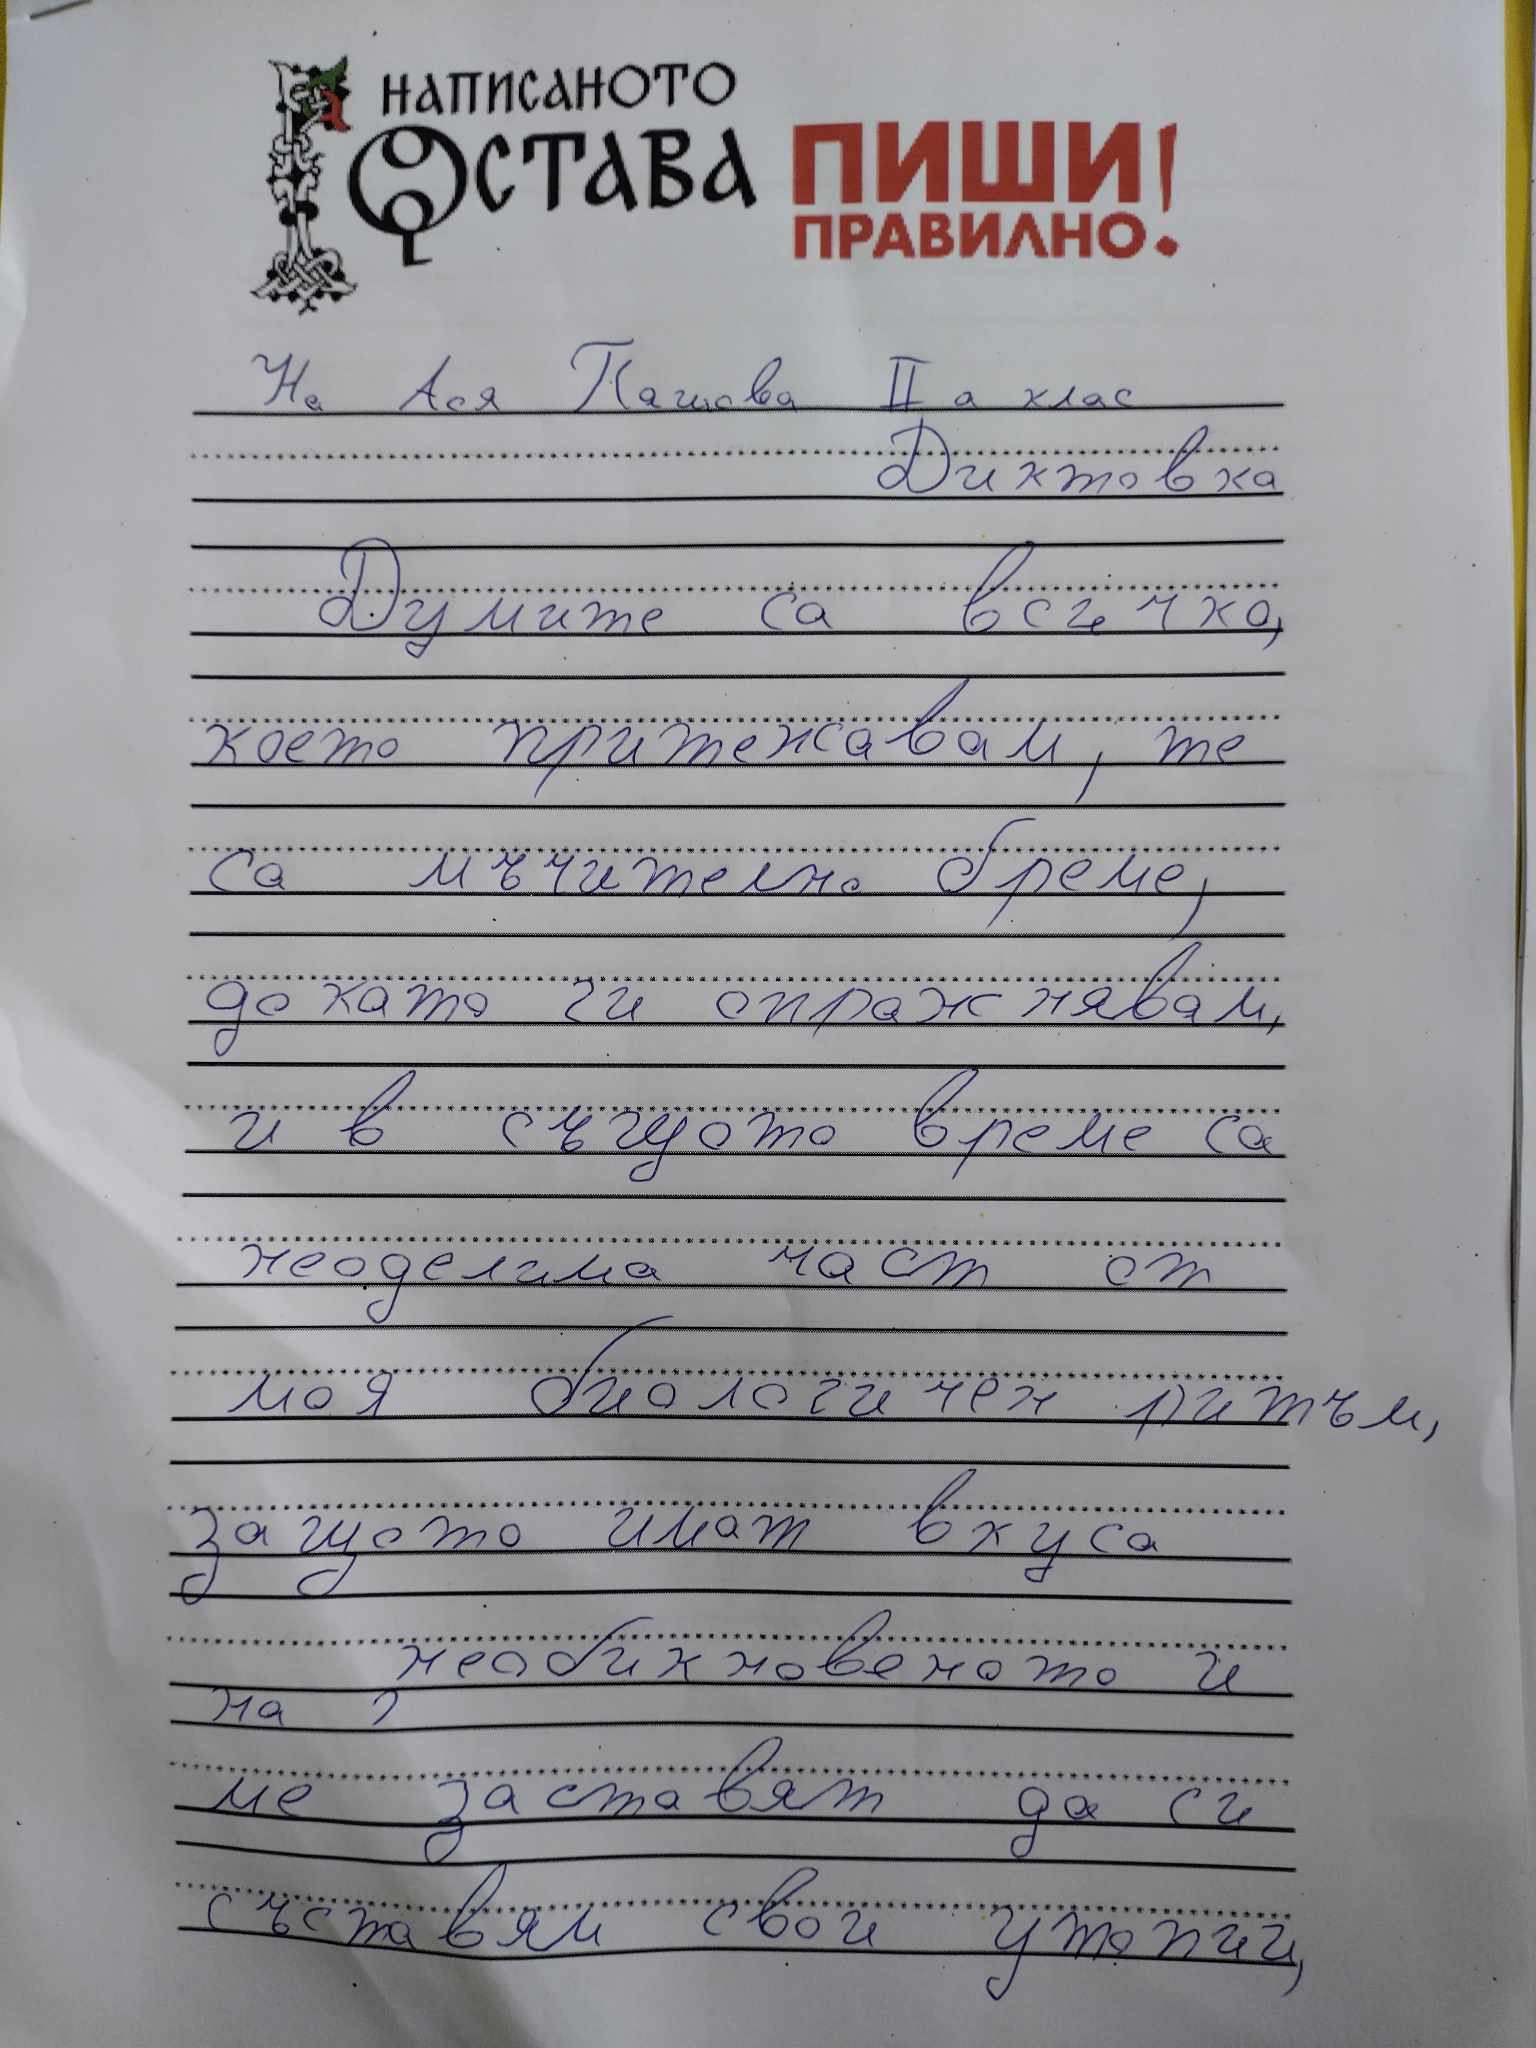 НАПИСАНОТО
ОСТАВА
ПИШИ!
ПРАВИЛНО
На Ася II а клас
Диктовка
Думите са всичко,
което притежавам, те
са мъчително бреме,
докато ги опражнявам,
и в същото време са
неоделима част от
моя биологичен ритъм,
защото имат вкуса
на необикновеното и
ме заставят да си
съставям свои утопии,